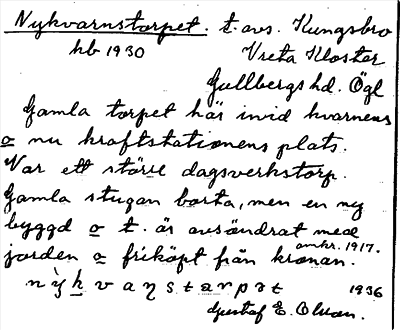 Nykvarnstorpet. t. avs. Kungsbro
hb 1930 Vreta Kloster
Gullbergs hd. Ögl
Gamla torpet här invid kvarnens
o nu kraftstationens plats.
Var ett större dagsverkstorp.
Gamla stugan borta, men en ny
byggd o t. är avsöndrat med
jorden o friköpt från kronan. omkr. 1917.
nỳk v a ŋ s t a r p ə t 1936
Gustaf E. Olson.